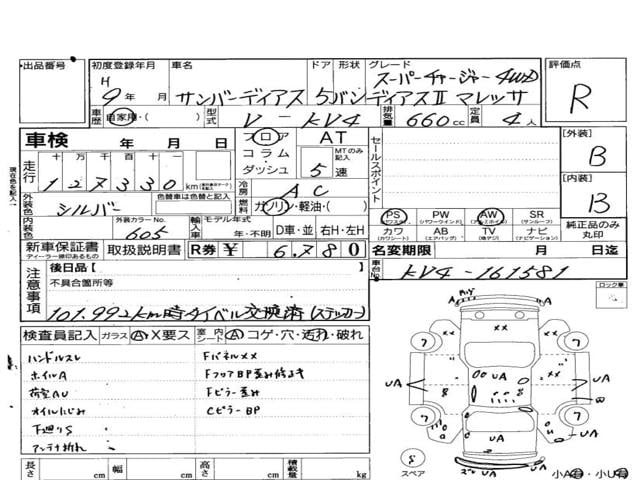 出品番号 初度登録年月 車名 ドア 形状 グレード 評価点
H 9年 月 サンバーディアス 5 バン ディアスⅡ マレッサ スーパーチャージャー 4WD R
車歴 自家用・( ) 型式 V-KV4 排気量 660cc 定員 4人
車検 年 月 日 フロア AT セールスポイント 【外装】
コラム・ MTのみ記入 B
走行 十万千百十一 ダッシュ 5速
現在色を記入 127330km 冷房 AC 【内装】
外装色 シルバー 色替車は色替と記入 燃料 ガソリン・軽油・( ) B
内装色 外装カラーNo. 605 輸入車 モデル年式 年・不明 D車・並 右H・左H
PS (パワステ) PW (パワーウインド) AW (アルミホイル) SR (サンルーフ)
カワ (カワシート) AB (エアバッグ) TV (地デジ) ナビ (ナビゲーション) 純正品のみ丸印
新車保証書 ディーラー捺印あるもの 取扱説明書 R券 ¥ 6,780 名変期限 月 日迄
注意事項 後日品【 】 車台No. KV4-161581
不具合箇所等 ロック車
101,992km時タイベル交換済(ステッカー)
検査員記入 ガラス A・X要ス 室内シート A コゲ・穴・汚れ・破れ
ハンドルスレ Fパネルメメ
ホイルA FフロアBP歪み修正キ
荷室AU Fピラー歪み
オイルにじみ CピラーBP
下廻りS
アンテナ折れ
長さ cm 幅 cm 高さ cm 積載量 kg
スペア 小A有・小U有